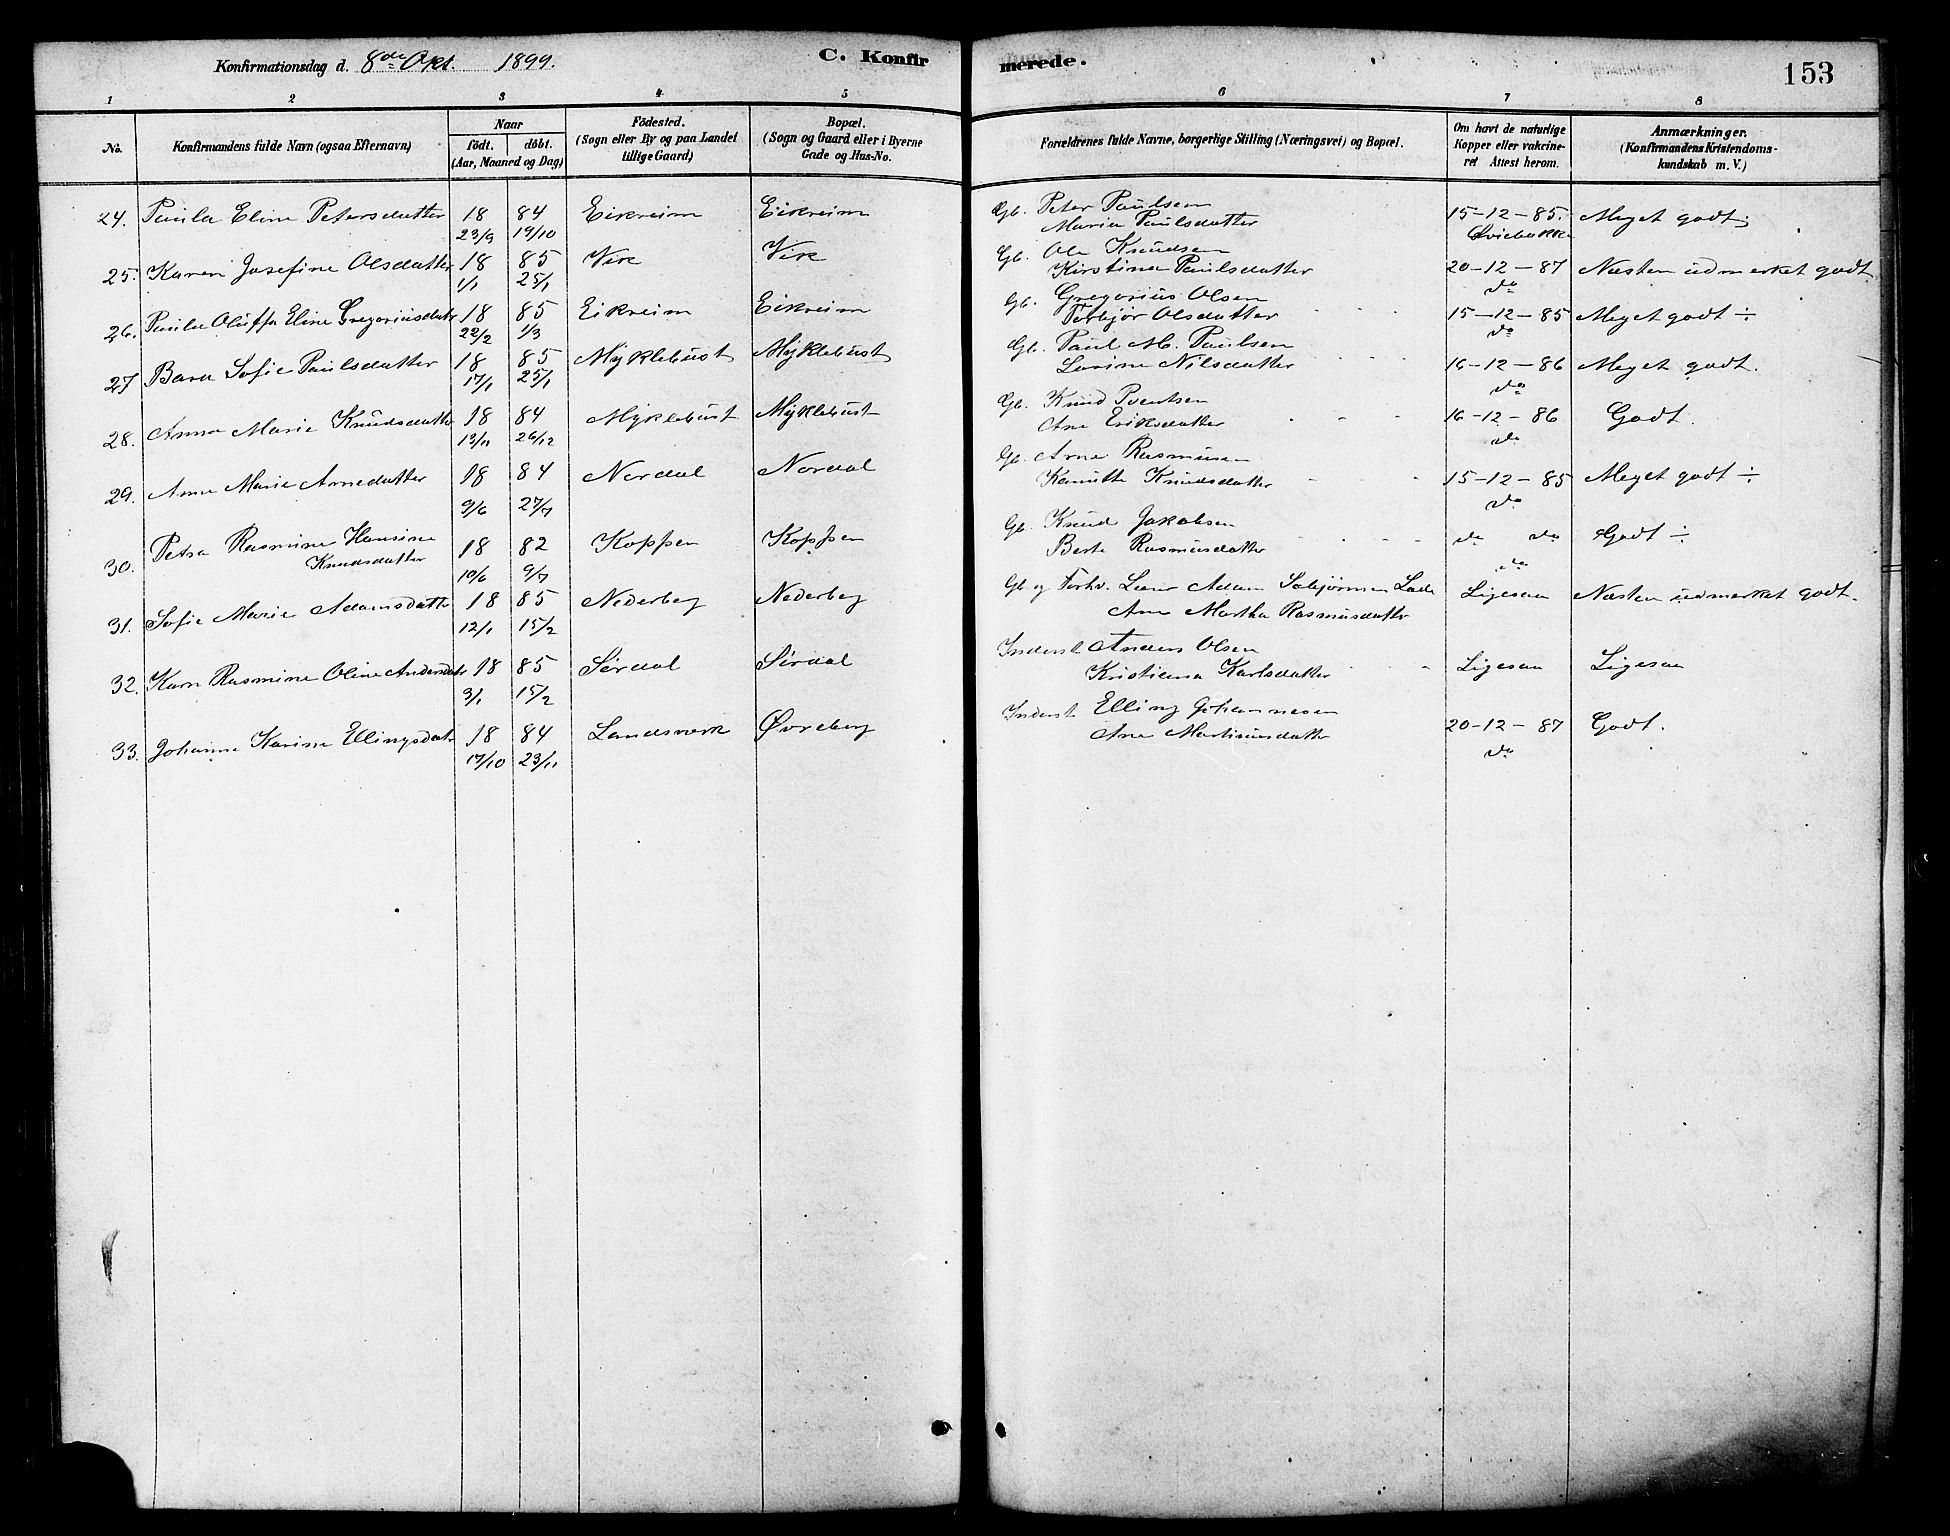 Konfirmationsdag d. 8de Okt. 1899.
C. Konfirmerede.
153
1 2 3 4 5 6 7 8
No. Konfirmandens fulde Navn (ogsaa Efternavn) Naar födt. döbt. (Aar, Maaned og Dag) Födested. (Sogn eller By og paa Landet tillige Gaard) Bopæl. (Sogn og Gaard eller i Byerne Gade og Hus-No. Forældrenes fulde Navne, borgerlige Stilling (Næringsvei) og Bopæl. Om havt de naturlige Kopper eller vakcineret Attest herom. Anmærkninger. (Konfirmandens Kristendomskundskab m. V.)
24. Paula Eline Petersdatter 18 84 Eikreim Eikreim Gb. Peter Paulsen 15-12-85. Meget godt.
23/9 19/10 Maria Paulsdatter
25. Karen Josefine Olsdatter 18 85 Vik Vik Gb. Ole Knudsen 20-12-87 Næsten udmerket godt
1/1 25/1 Kirstine Paulsdatter do
26. Paula Oluffa Eline Gregoriusdatr 18 85 Eikreim Eikreim Gb. Gregorius Olsen 15-12-85 Meget godt ÷
22/2 1/3 Torbjør Olsdatter do
27 Bara Sofie Paulsdatter 18 85 Myklebust Myklebust Gb. Paul M. Paulsen 16-12-86 Meget godt.
17/1 25/1 Lovine Nilsdatter do
28. Anna Marie Knudsdatter 18 84 Myklebust Myklebust Gb. Knud Iventsen 16-12-86 Godt.
13/11 26/12 Ane Eriksdatter do
29. Anne Marie Arnedatter 18 84 Nordal Nordal Gb. Arne Rasmusen 15-12-85 Meget godt ÷
9/6 27/7 Kanutte Knudsdatter do
30. Petra Rasmine Hansine Knudsdatter 18 82 Koppen Koppen Gb. Knud Jakobsen do do Godt ÷
10/6 9/7 Berte Rasmusdatter do
31. Sofie Marie Adamsdattr 18 85 Nederberg Nederberg Gb. og Forhv. Lærer Adam Lade Ligesaa Næsten udmerket godt.
12/1 15/2 Ane Martha Rasmusdatter
32. Karn Rasmine Oline Andersdatr 18 85 Sørdal Sørdal Inderst Anders Olsen Ligesaa Ligesaa
9/1 15/2 Kristiena Karlsdatter
33. Johanne Karine Ellingsdatr 18 84 Landsverk Øvreberg Inderst Elling Johannesen 20-12-87 Godt.
17/10 23/11 Ane Martinusdatter do